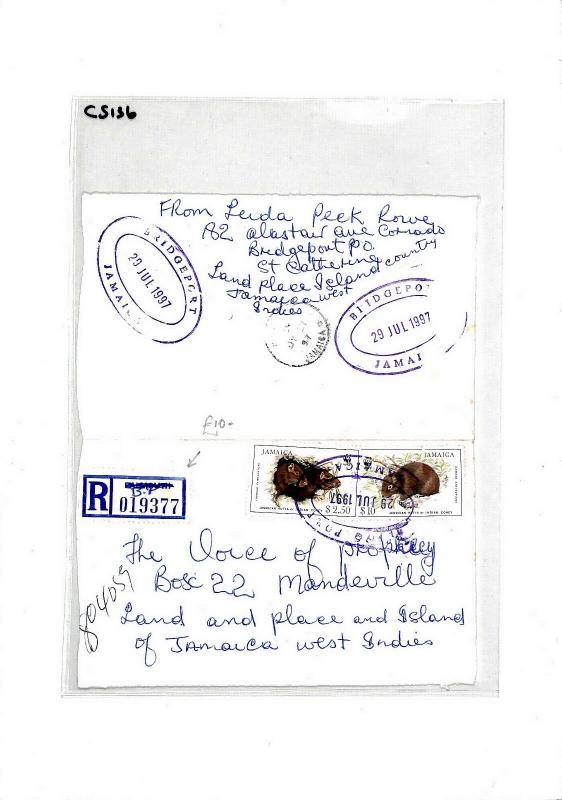 CS136
FROM Leida Peek Rowe
A2 alastair ave Cornado
Bridgeport P.O.
St Catherine country
Land place Island
Jamaica west
Indies
BRIDGEPORT
29 JUL 1997
JAMAICA
BRIDGEPO
29 JUL 1997
JAMAI
97
JAMAICA
£10-
JAMAICA
JAMAICA
$2.50
$10
JAMAICAN HUTIA OR INDIAN CONEY
JAMAICAN HUTIA OR INDIAN CONEY
29 JUL 1997
R
B.P
019377
The Voice of prophecy
Box 22 Mandeville
Land and place and Island
of Jamaica west Indies
804059